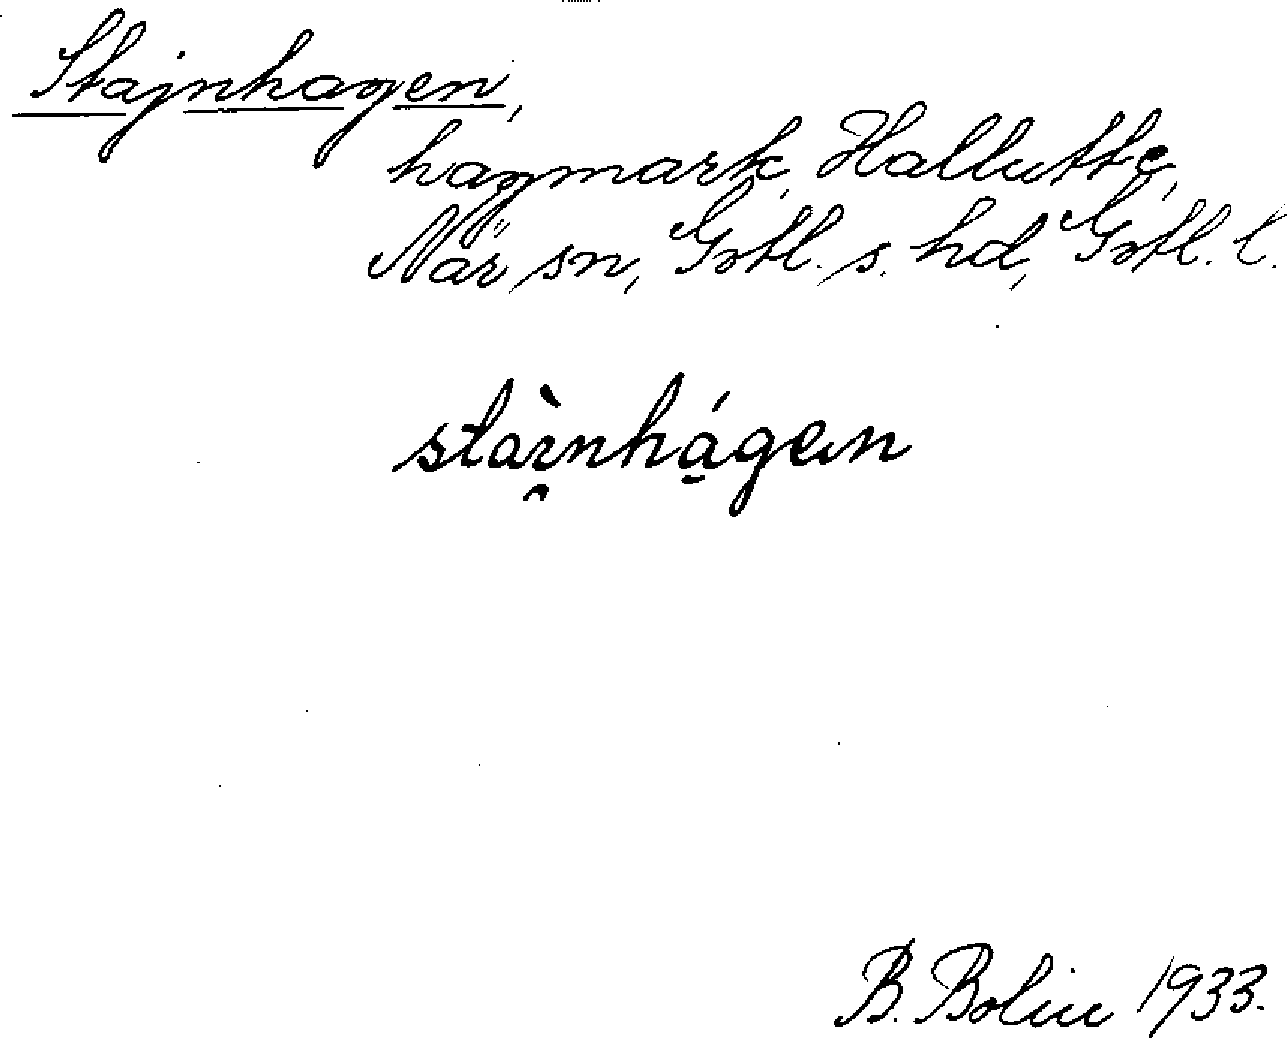 Stajnhagen,
hagmark, Hallutte,
När sn, Gotl. s. hd, Gotl. l.
staì̯nhá̱gen
B. Bolin 1933.